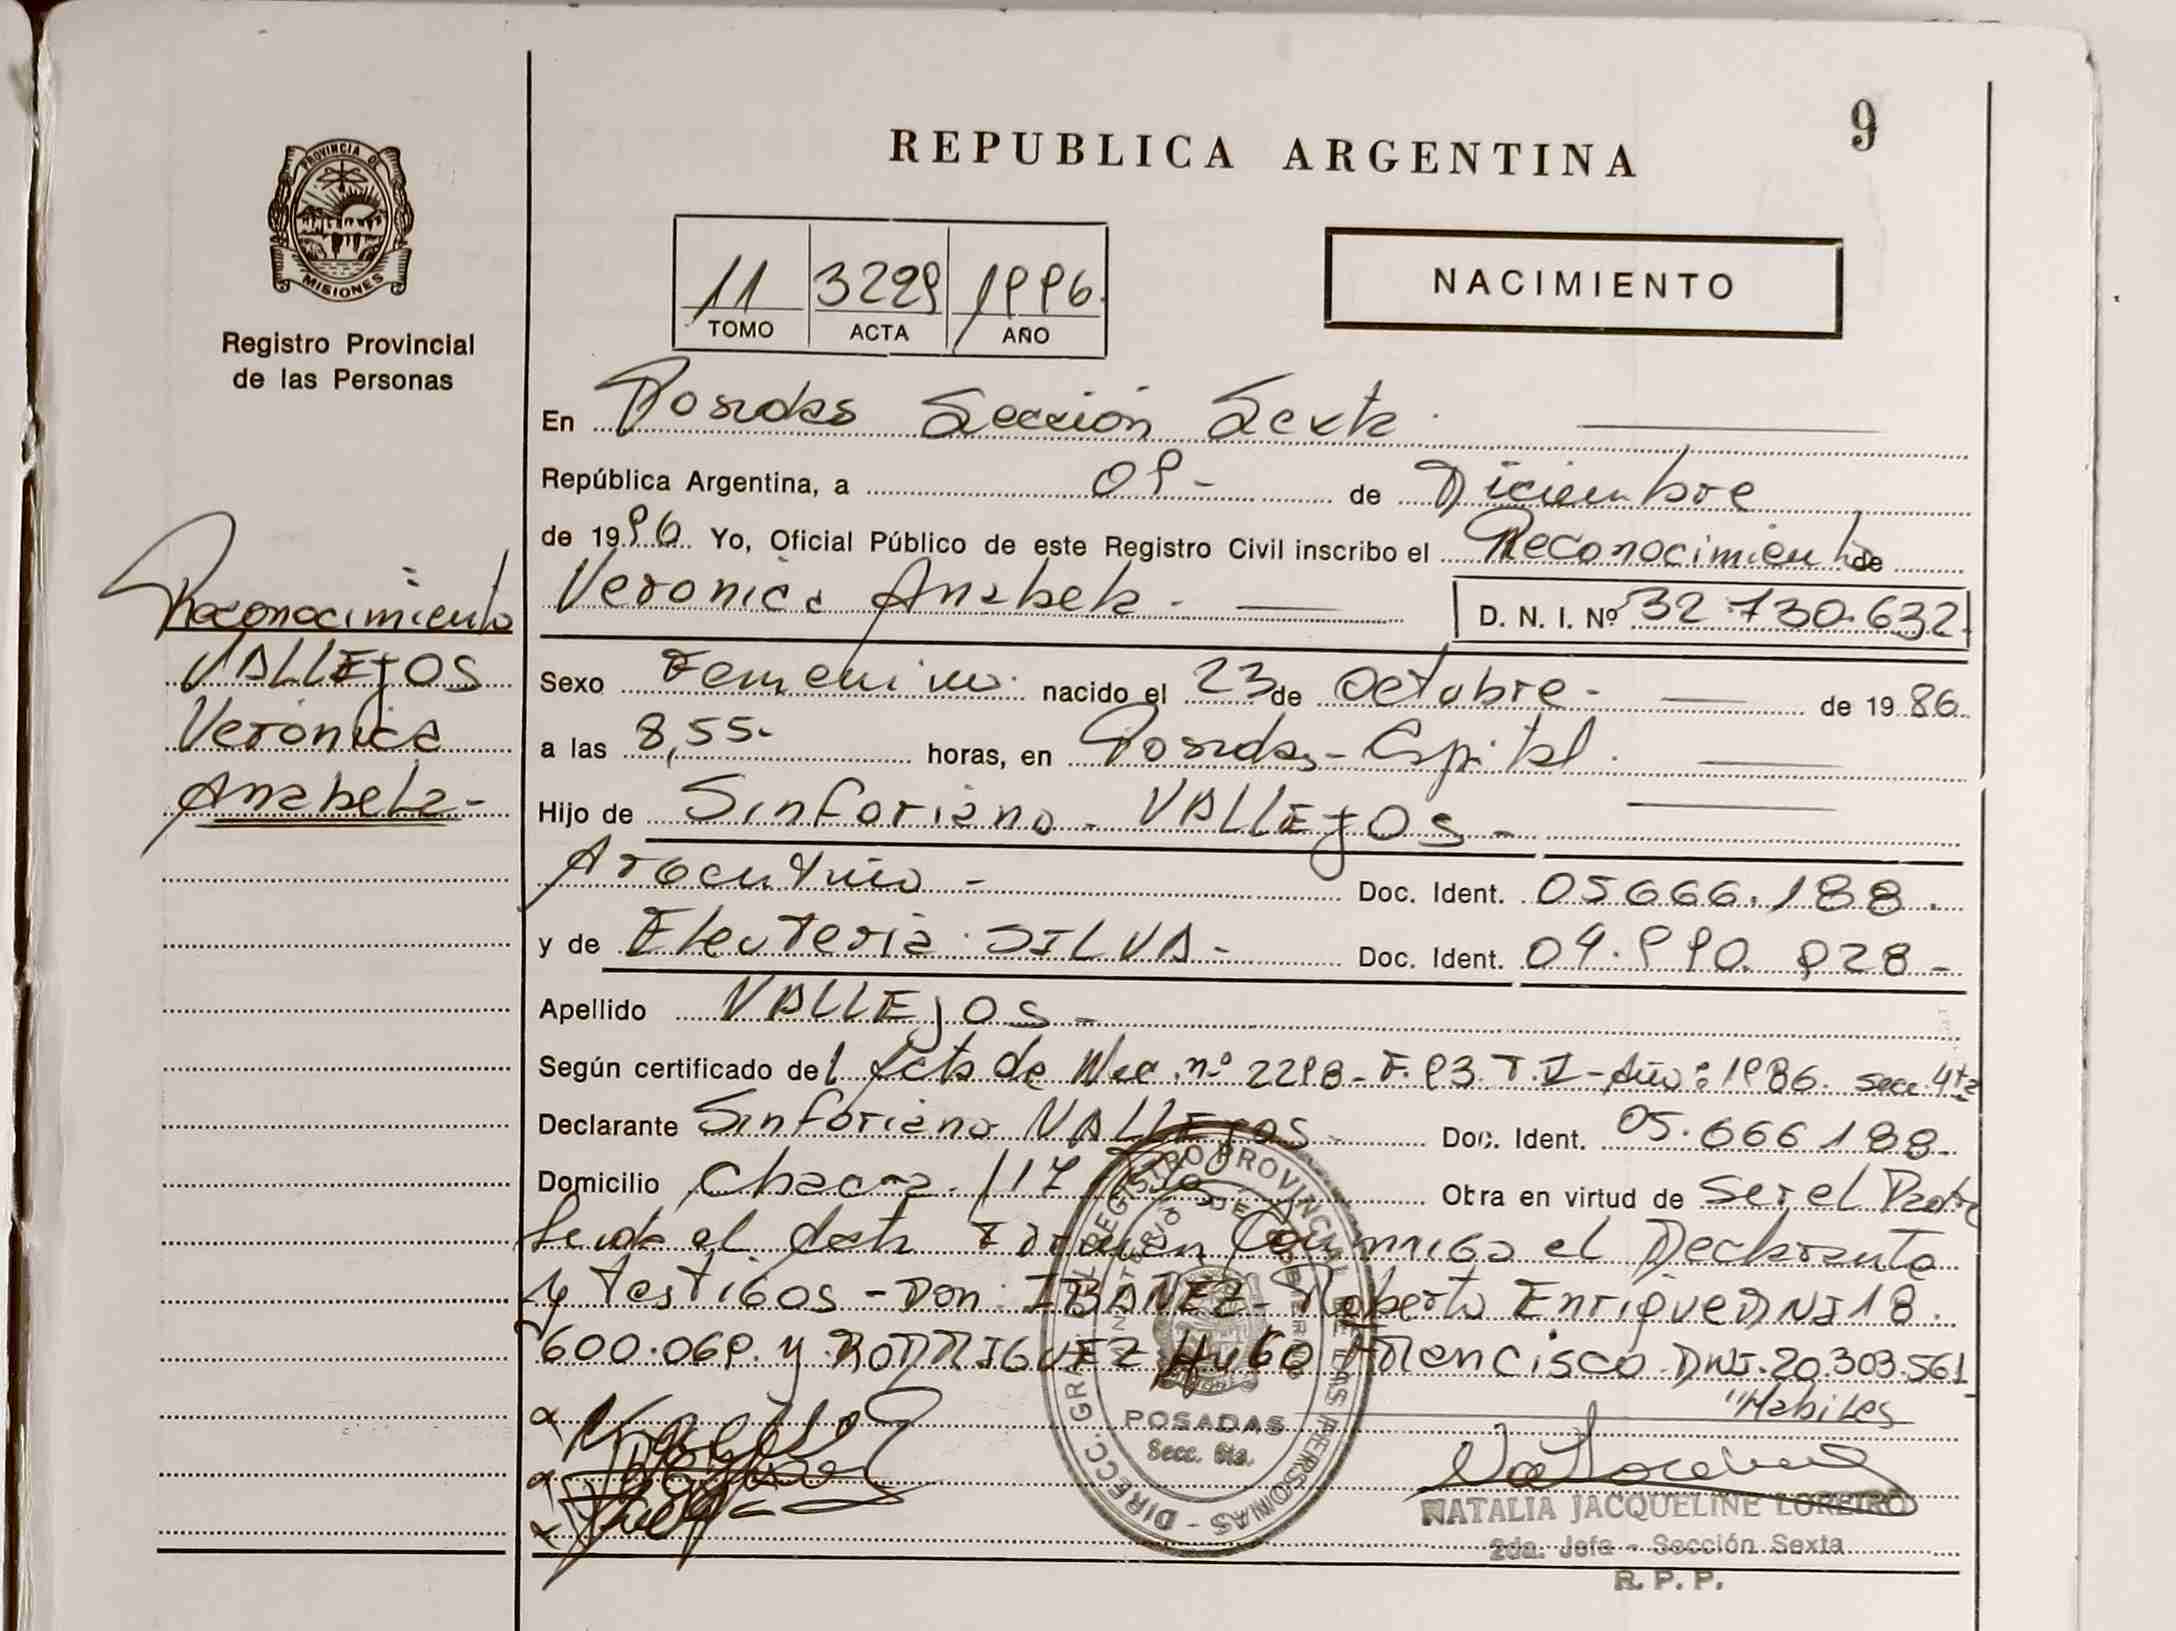 9
REPUBLICA ARGENTINA
PROVINCIA DE
MISIONES
Registro Provincial
de las Personas
11 3299 1996.
TOMO ACTA AÑO
NACIMIENTO
En Posadas Sección Sexta.
República Argentina, a 09- de Diciembre
de 1996 Yo, Oficial Público de este Registro Civil inscribo el Reconocimiento de
Veronica Anabela. - D. N. I. Nº 32.730.632.
Reconocimiento
VALLEJOS
Verónica
Anabela-
Sexo Femenino. nacido el 23 de Octubre- de 1986
a las 8,55- horas, en Posadas-Capital.
Hijo de Sinforiano- VALLEJOS-
Argentino- Doc. Ident. 05666.188.
y de Eleuteria SILVA- Doc. Ident. 04.990.928-
Apellido VALLEJOS-
Según certificado del Acta de Nac. nº 2298-F.93.T.I-Año:1986. Secc.4ta
Declarante Sinforiano VALLEJOS- Doc. Ident. 05.666188-
Domicilio Chacra.117 Obra en virtud de Ser el Padre
Leida el Acta Firman Conmigo el Declarante
y testigos-Don: IBAÑEZ-Roberto Enrique DNI 18.
600.069. y RODRIGUEZ Hugo Francisco DNI.20.303.561
"Habiles
DIRECC. GRAL. REGISTRO PROVINCIAL DE LAS PERSONAS
POSADAS
Secc. 6ta.
NATALIA JACQUELINE LOREIRO
2da. Jefa - Sección Sexta
R. P. P.